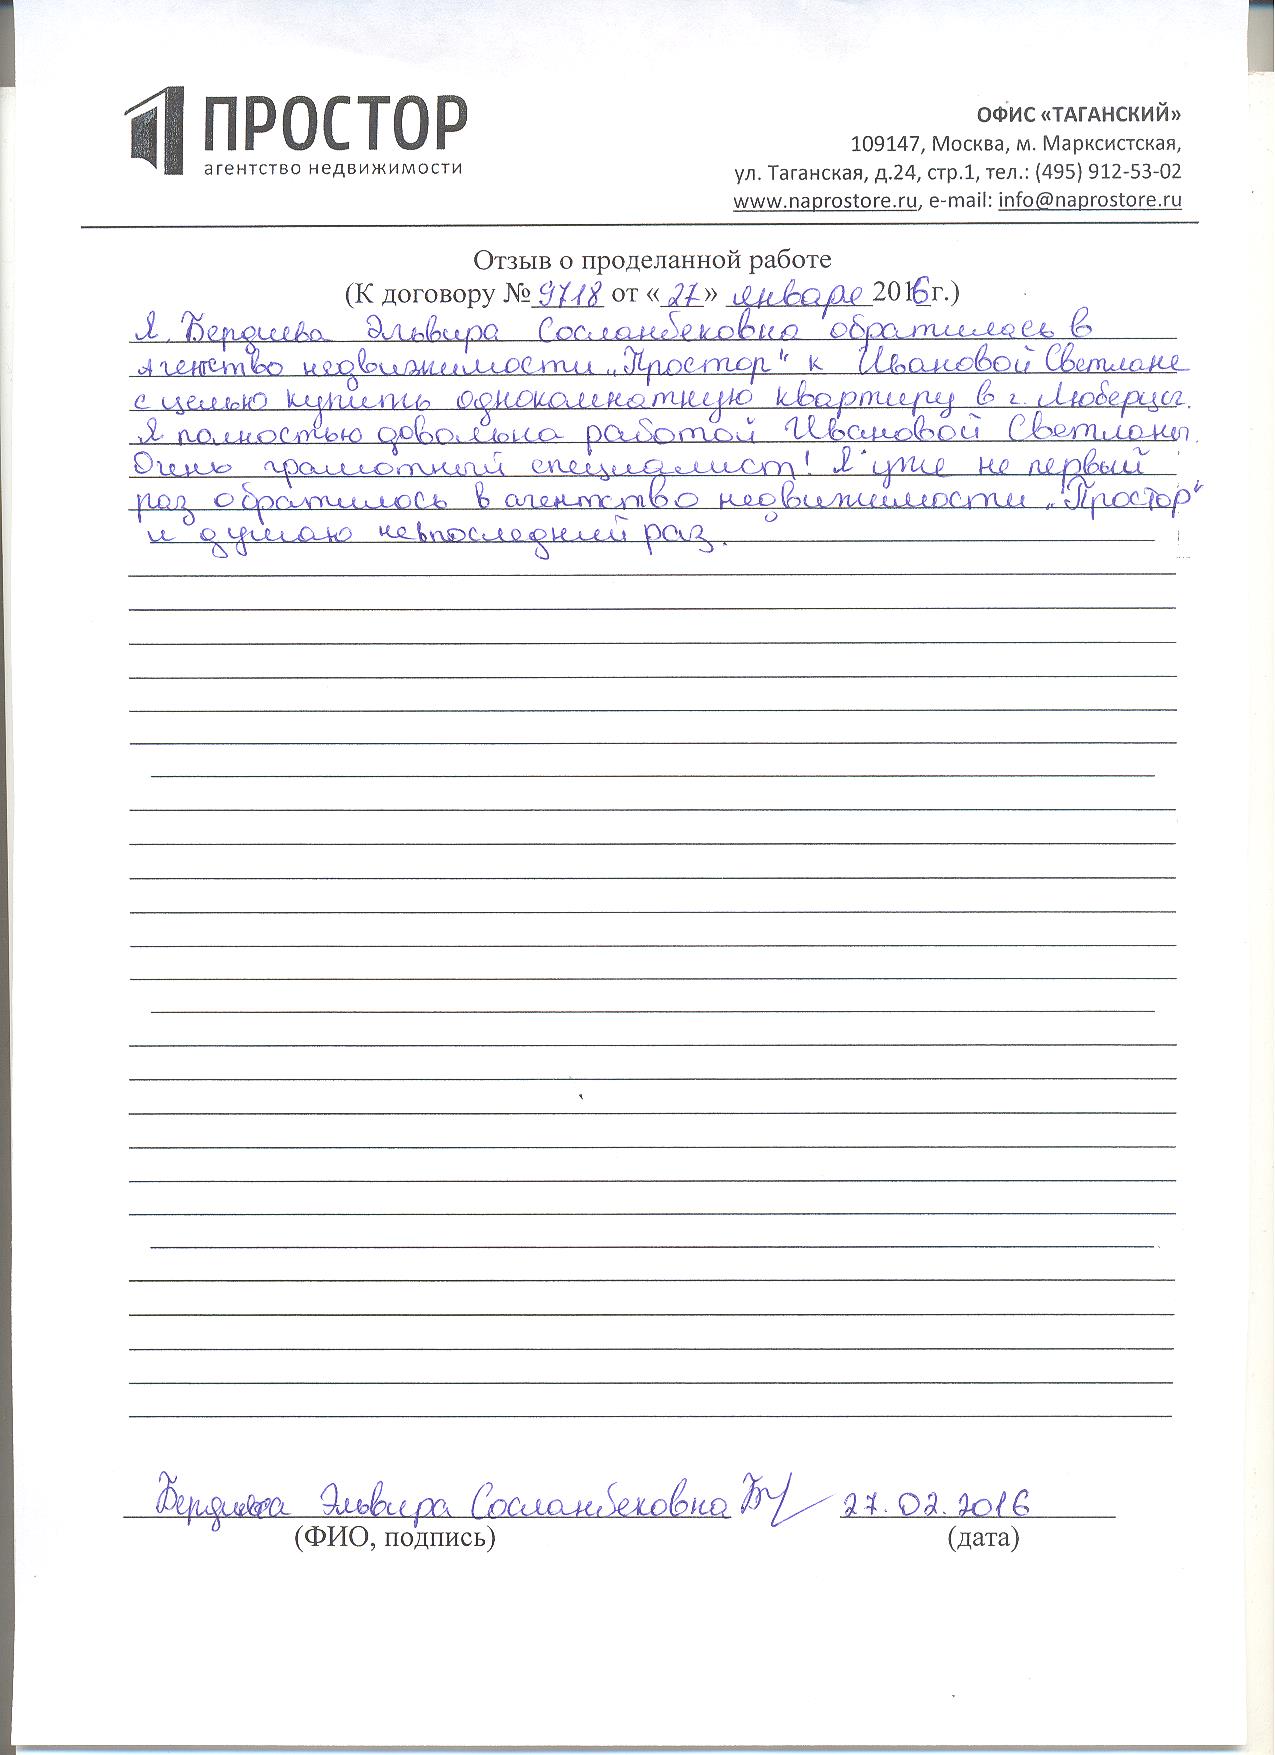 ПРОСТОР
агентство недвижимости
ОФИС «ТАГАНСКИЙ»
109147, Москва, м. Марксистская,
ул. Таганская, д.24, стр.1, тел.: (495) 912-53-02
www.naprostore.ru, e-mail: info@naprostore.ru
Отзыв о проделанной работе
(К договору № 9718 от «27» январе 2016г.)
Я, Бердиева Эльвира Сосланбековна обратилась в
агентство недвижимости „Простор" к Ивановой Светлане
с целью купить однокомнатную квартиру в г. Люберцы.
Я полностью довольна работой Ивановой Светланы.
Очень грамотный специалист! Я уже не первый
раз обратилось в агентство недвижимости „Простор"
и думаю невпоследний раз.
Бердиева Эльвира Сосланбековна 27.02.2016
(ФИО, подпись) (дата)